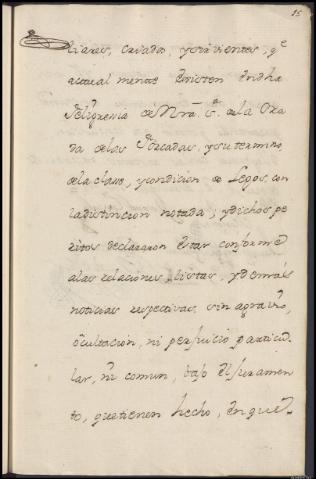 15
liares, Criados, y sirvientes, q.e
actual mente Existen En dha
Feligresia de Nrã. S.ª de la O
da de las Forcadas, y su termino,
de la clase, y condicion de Legos, con
la distincion notada; y dichos pe
ritos declararon Estar conforme
a las relaciones, listas, y demás
noticias respectivas, sin agravio,
ocultación, ni perjuicio particu-
lar, ni comun, bajo El juramen
to, que tienen hecho, En que